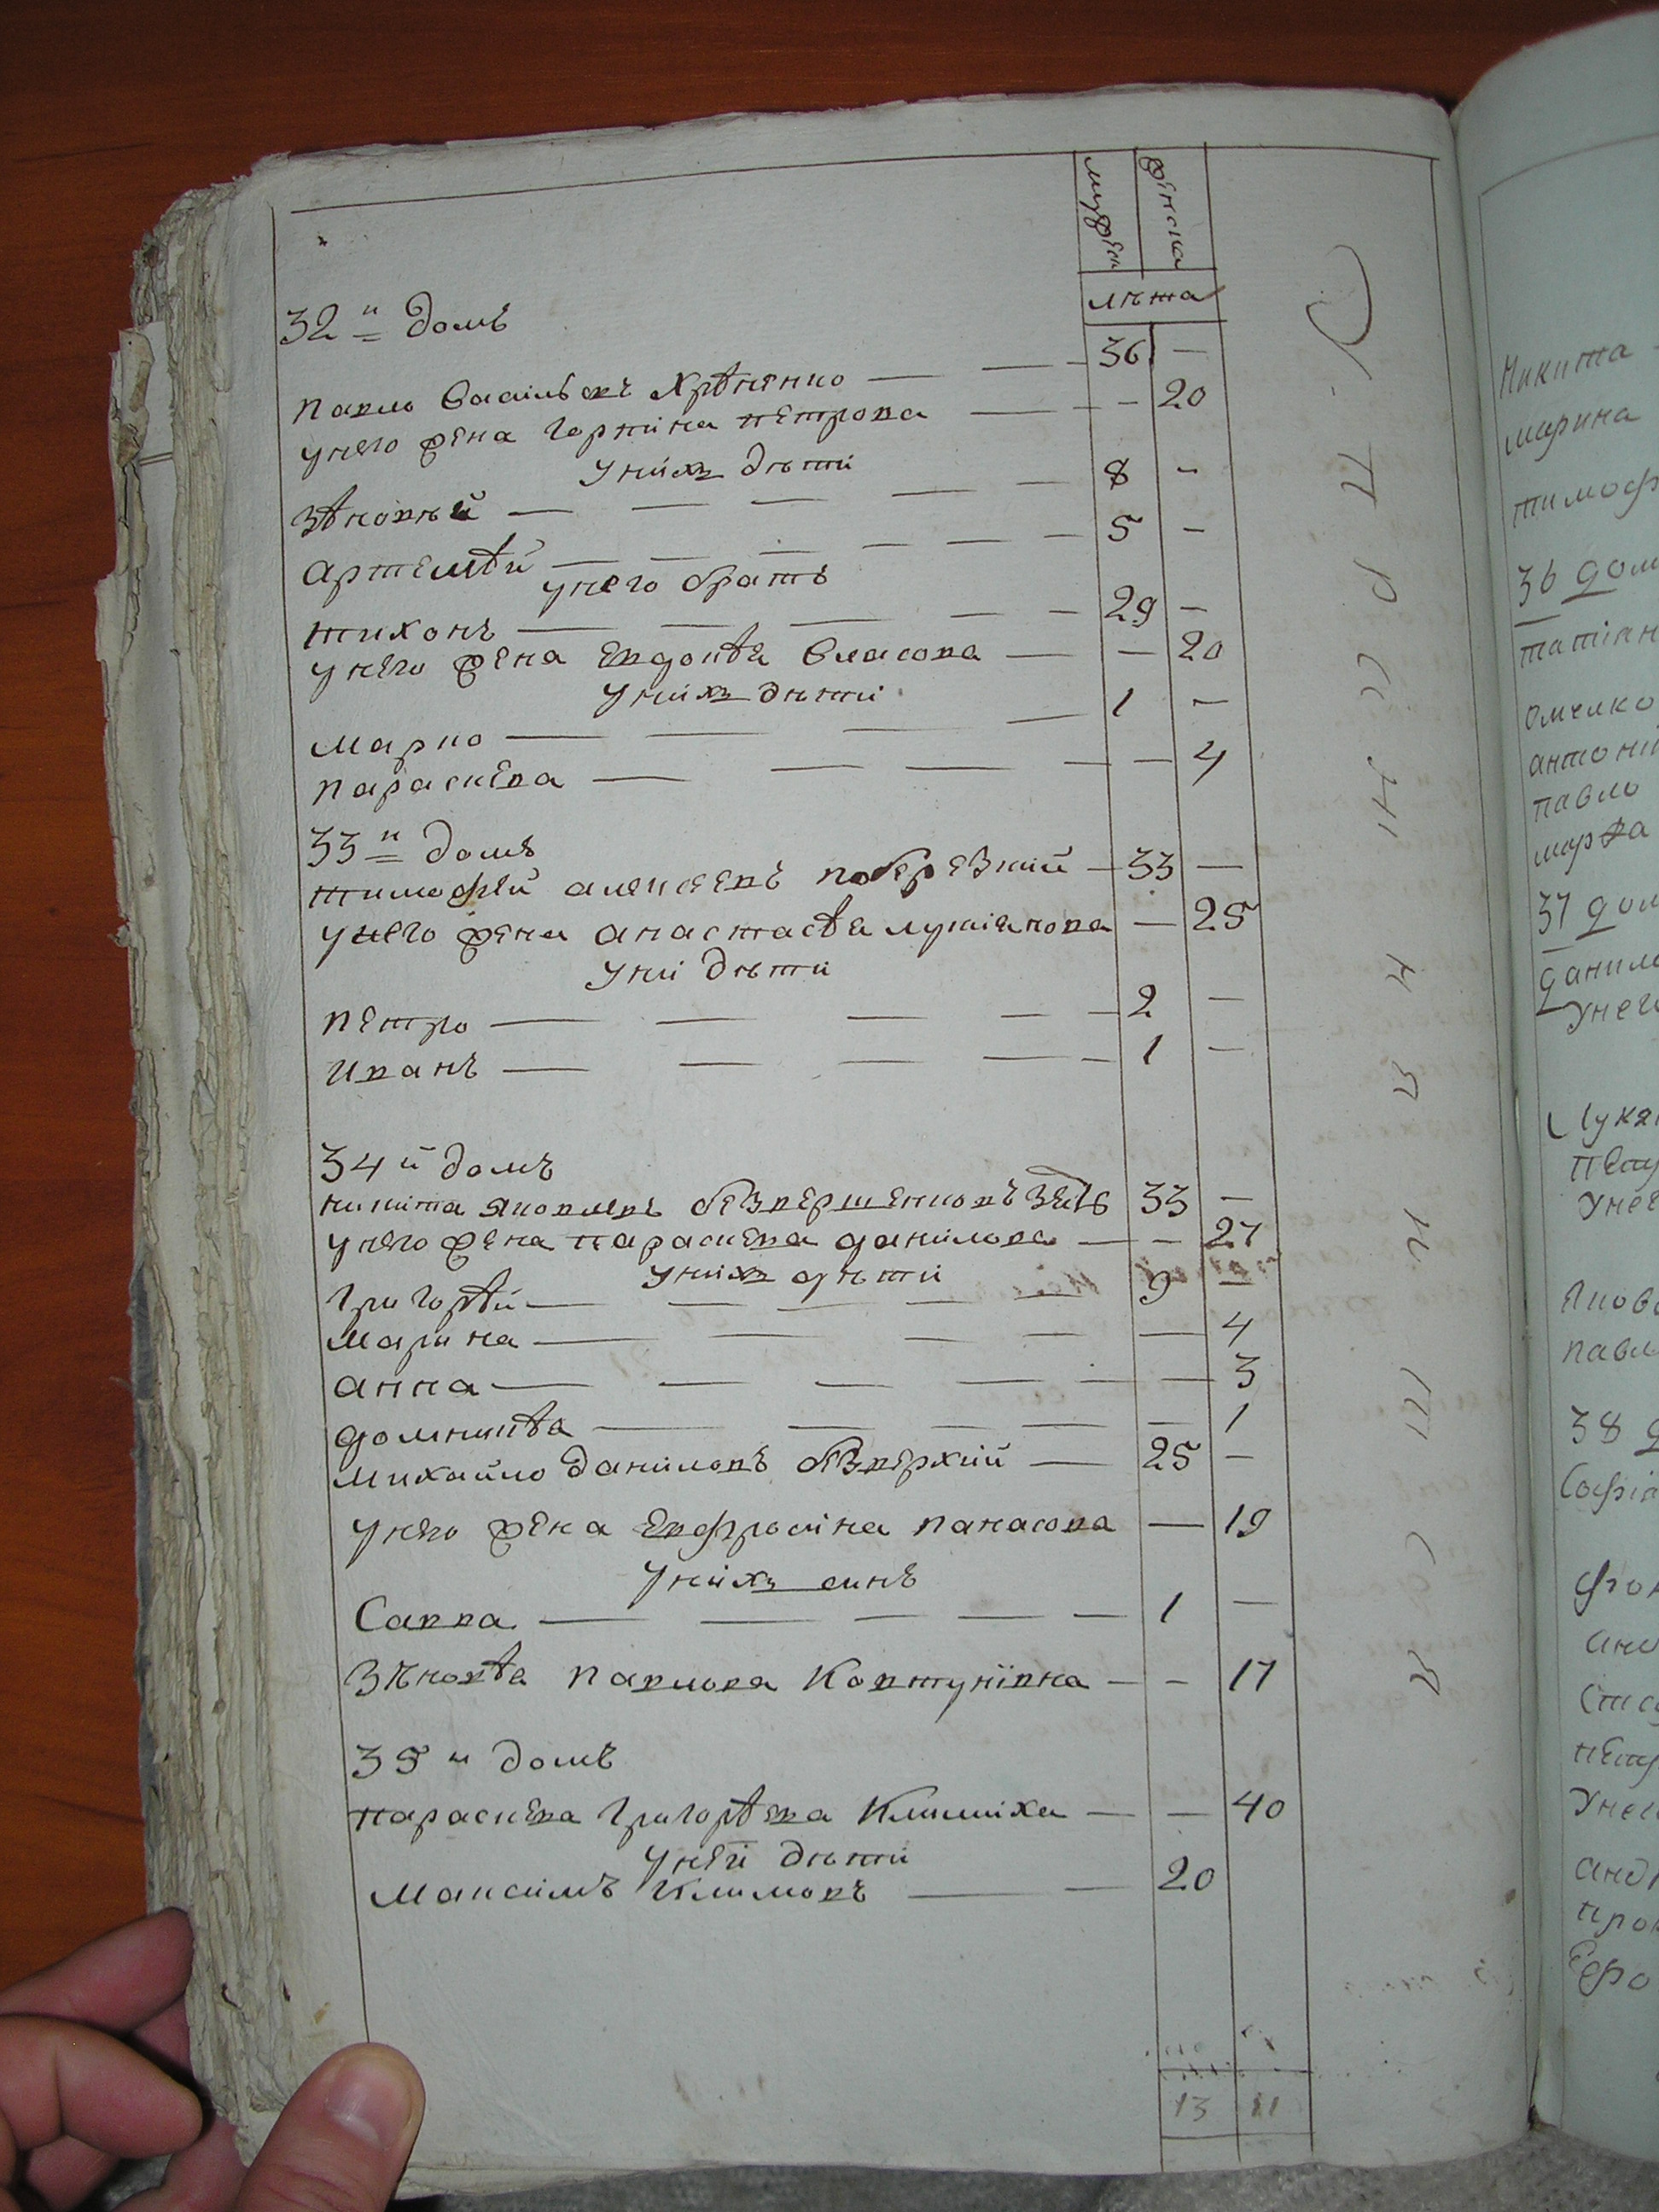 мужеск женска
лѣта
32 й домъ
павло василѣевъ Хрѣненко — — — 36 —
у него жена Горпіна петрова — — — 20
У нихъ дѣти
Зѣновѣй — — — — — 8 —
артемѣй — — — — — — 5 —
у него братъ
тихонъ — — — — — 29 —
у него жена Евдокѣя власова — — 20
У нихъ дѣти
Марко — — — — 1 —
параскева — — — — — — 4
33 й домъ
тимофей алексеевъ поберезкий — 33 —
у него жена анастасѣя лукіянова — 25
У ни дѣти
петро — — — — — 2 —
иванъ — — — — — 1 —
34 й домъ
никита яковлевъ безвершенковъ зять 33 —
у него жена параскева данилова — — 27
У нихъ дѣти
Григорѣй — — — — — 9 —
Марина — — — — — 4
анна — — — — — — 3
домникѣя — — — — — 1
михайло даниловъ безверхий — 25 —
у него жена Евфросина панасова — 19
У нихъ синъ
Савва — — — — — 1 —
Зѣновѣя павлова Ковтунівна — — 17
35 й домъ
параскева Григорѣева Климиха — — 40
У неи дѣти
Максимъ Климовъ — — 20
13 11
Никита
марина
тимоф
36 дом
татіан
Омелко
антоні
павло
марѳа
37 дом
данило
Унего
Лукя
петр
Унег
Яков
павл
38 д
Софія